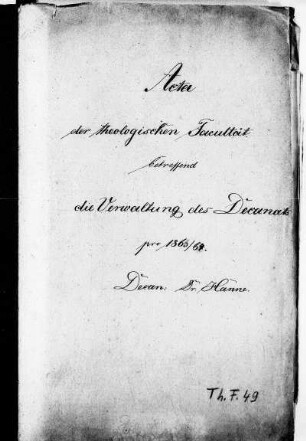 Acta
der theologischen Facultät
betreffend
die Verwaltung des Decanats
pro 1863/64.
Decan. Dr. Hanne.
Th. F. 49